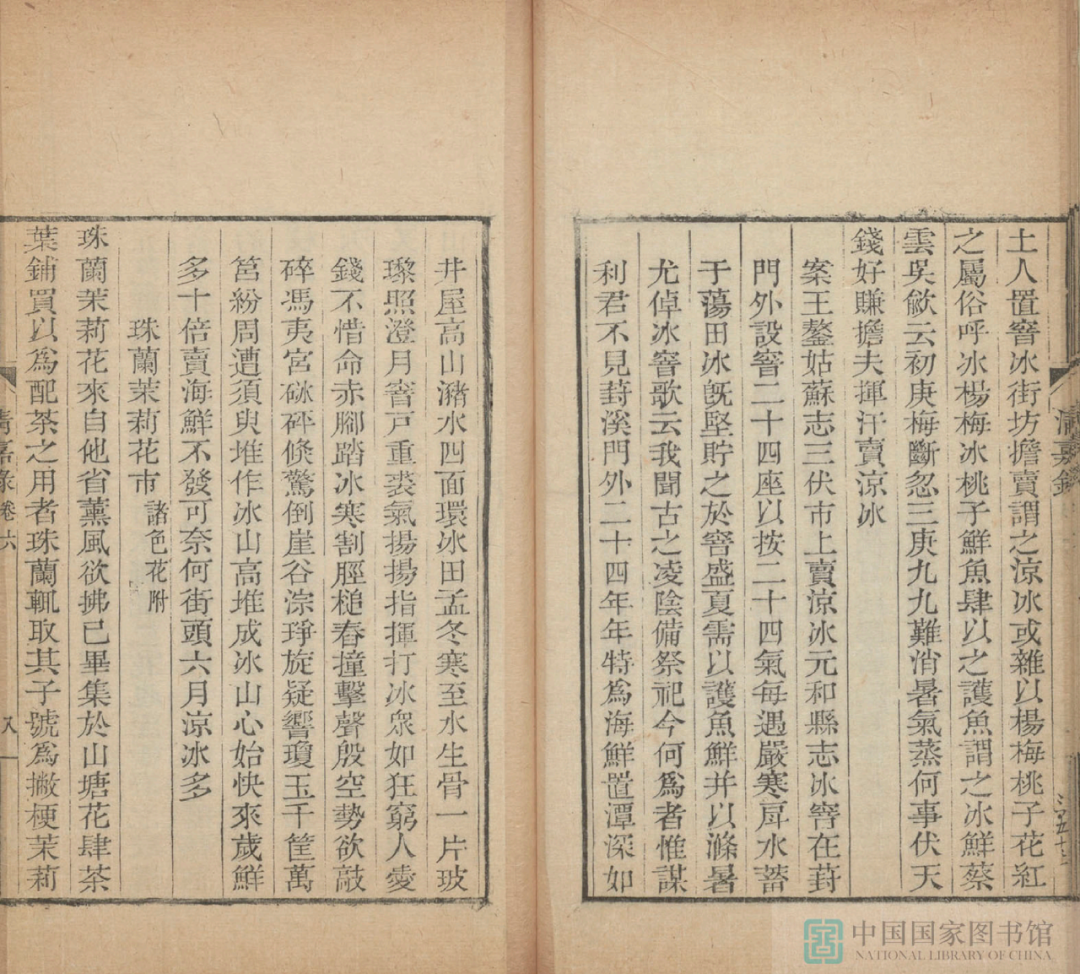 土人置窖冰街坊擔賣謂之涼冰或雜以楊梅桃子花紅
之屬俗呼冰楊梅冰桃子鮮魚肆以之護魚謂之冰鮮蔡
雲吳歈云初庚梅斷忽三庚九九難消暑氣蒸何事伏天
錢好賺擔夫揮汗賣涼冰
案王鏊姑蘇志三伏市上賣涼冰元和縣志冰窨在葑
門外設窨二十四座以按二十四氣每遇嚴寒戽水蓄
于蕩田冰旣堅貯之於窨盛夏需以護魚鮮并以滌暑
尤倬冰窨歌云我聞古之凌陰備祭祀今何爲者惟謀
利君不見葑溪門外二十四年年特爲海鮮置潭深如
井屋高山瀦水四面環冰田孟冬寒至水生骨一片玻
瓈照澄月窨戸重裘氣揚揚指揮打冰眾如狂窮人愛
錢不惜命赤腳踏冰寒割脛槌舂撞擊聲殷空勢欲敲
碎馮夷宮砅砰倐驚倒崖谷淙琤旋疑響瓊玉千筐萬
筥紛周遭須臾堆作冰山高堆成冰山心始快來歲鮮
多十倍賣海鮮不發可奈何街頭六月涼冰多
珠蘭茉莉花市 諸色花附
珠蘭茉莉花來自他省薰風欲拂已畢集於山塘花肆茶
葉鋪買以爲配茶之用者珠蘭輒取其子號爲撇梗茉莉
清嘉錄 卷六
八
中国国家图书馆
NATIONAL LIBRARY OF CHINA